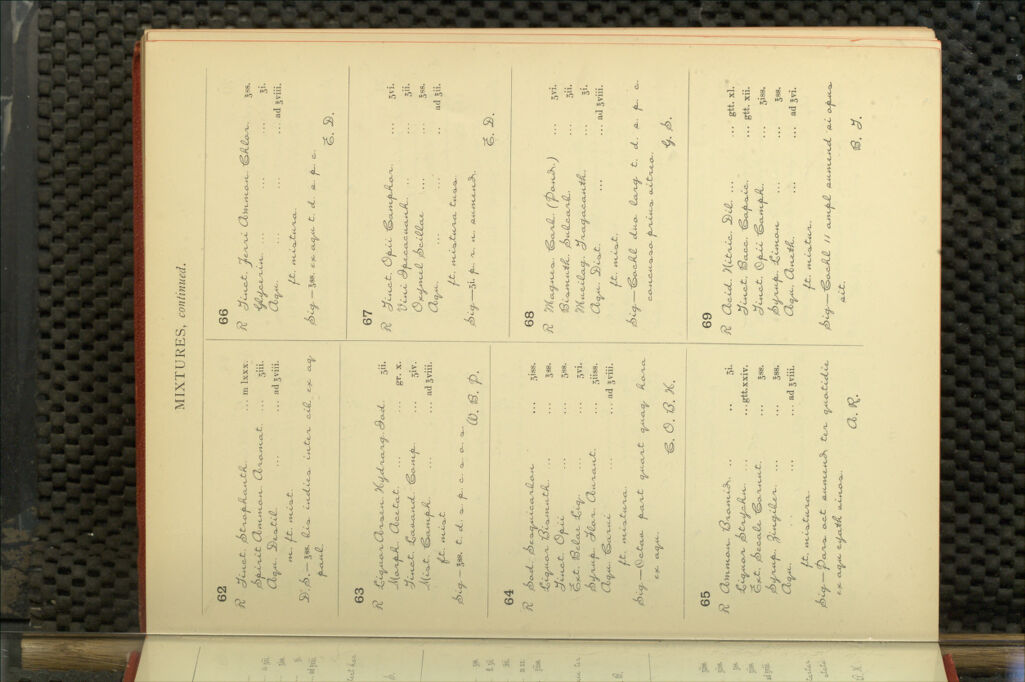 MIXTURES, continued.
62
R Tinct. Strophanth. ... m lxxx.
Spirit Ammon Aromat. ... ʒiii.
Aqu. Destil ... ad ℥viii.
m. ft. mist.
D.S.—℥ss. bis indies inter cib. ex aq
paul.
63
R Liquor Arsen Hydrarg Iod ʒii.
Morph. Acetat. ... gr. x.
Tinct. Lavand. Comp. ... ʒiv.
Mist Camph. ... ad ℥viii.
ft. mist.
Sig—℥ss. t. d. s. p. c. s. a. s.
W. B. P.
64
R Sod Sesquicarbon ... ʒiss.
Liquor Bismuth. ... ℥ss.
Tinct Opii ... ʒss.
Ext. Belae Liq. ... ʒvi.
Syrup Flor Aurant. ... ʒiiss.
Aqu. Carui ... ad ℥viii.
ft. mistura.
Sig—Octav part quart quaq hora
ex aqu.
C. O. B. K.
65
R Ammon Bromid. .. .. ʒi.
Liquor Strychn. ... gtt.xxiv.
Ext. Secale Cornut. ... ʒss.
Syrup. Zingiber. ... ℥ss.
Aqu. ... ... ad ℥viii.
ft. mistura
Sig—Pars oct sumend ter quotidie
ex aqu cyath vinos.
A. R.
66
R Tinct. Ferri Ammon Chlor. ℥ss.
Glycerin ... ... ... ℥i.
Aqu. ... ... ... ad ℥viii.
ft. mistura.
Sig—℥ss. ex aqu t. d. s. p. c.
E. D.
67
R Tinct Opii Camphor. ... ʒvi.
Vini Ipecacuanh. ... ʒii.
Oxymel Scillae ... ℥ss.
Aqu. ... ... .. ad ℥ii.
ft. mistura tuss.
Sig—ʒi p. r. n. sumend.
E. D.
68
R Magnes Carb. (Pond.) ... ʒvi.
Bismuth. Subcarb. ... ʒii.
Mucilag. Tragacanth. ... ℥i.
Aqu. Dist. ... ... ad ℥viii.
ft. mist.
Sig—Cochl duo larg t. d. s. p c.
concusso prius vitreo.
G. S.
69
R Acid Nitric Dil. ... ... gtt. xl.
Tinct Bacc. Capsic. ... gtt. xii.
Tinct. Opii Camph. ... ʒiss.
Syrup. Limon ... ... ℥ss.
Aqu. Aneth. ... ... ad ℥vi.
ft. mistur.
Sig—Cochl 11 ampl sumend si opus
sit.
B. J.